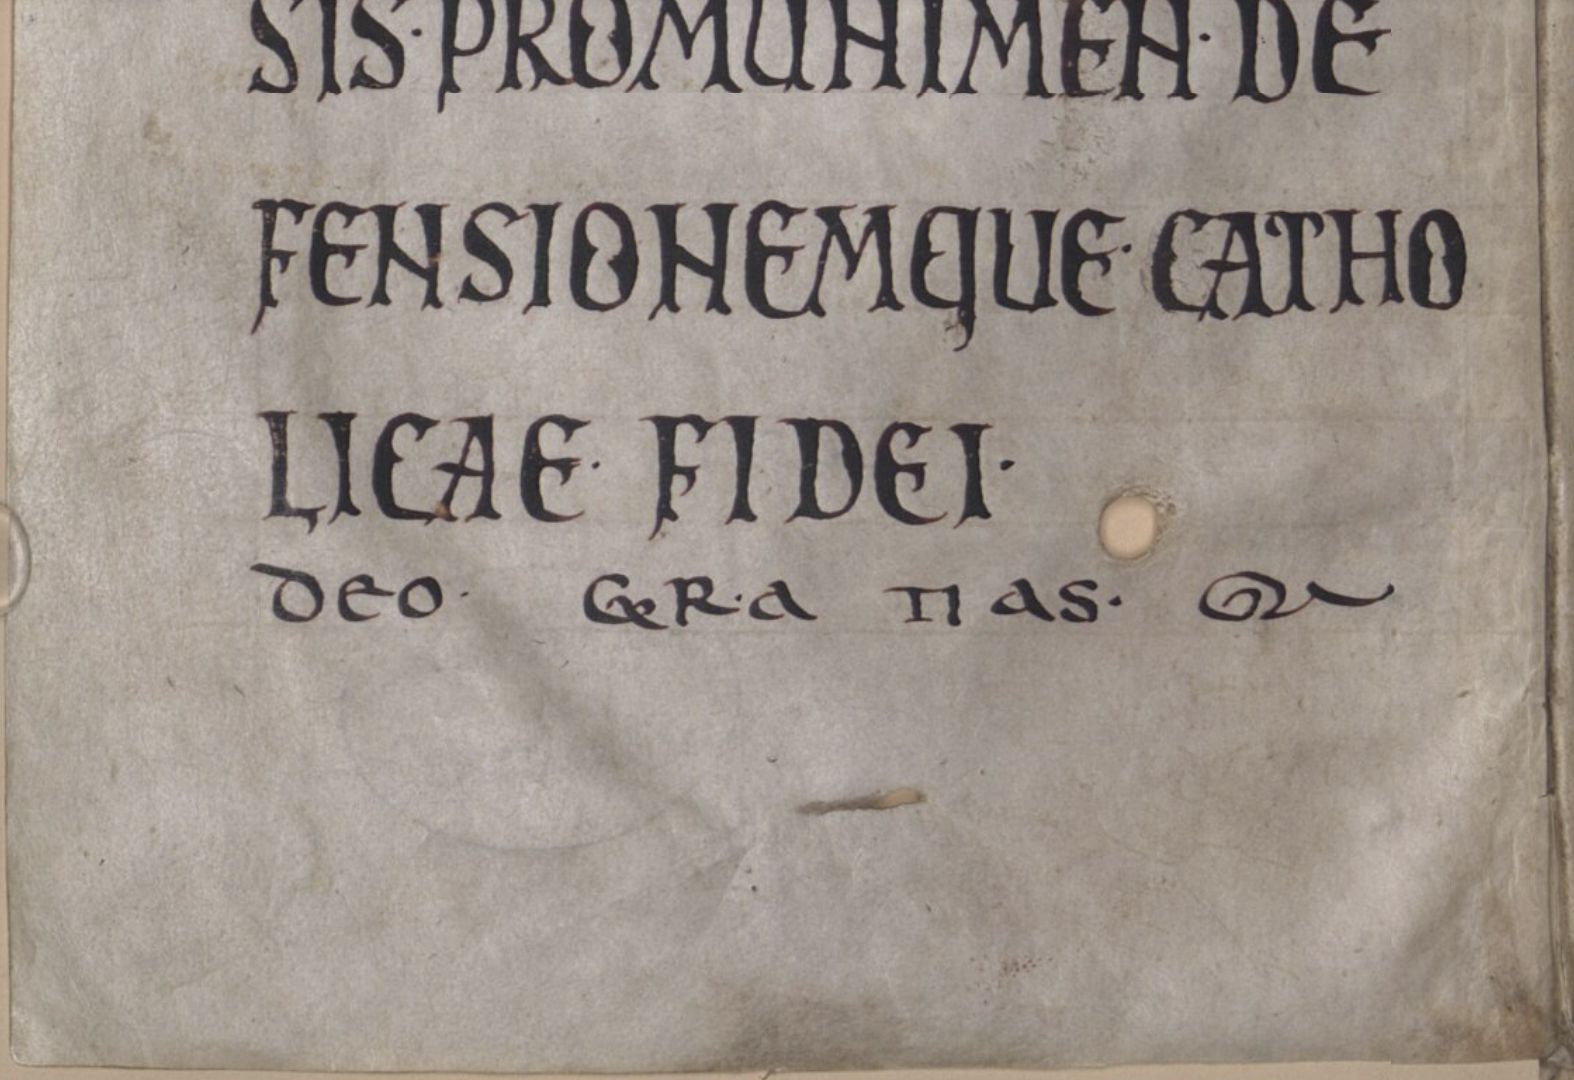 SIS·PROMUNIMEN·DE
FENSIONEMQUE·CATHO
LICAE· FIDEI·
DEO· GR·A TI AS·